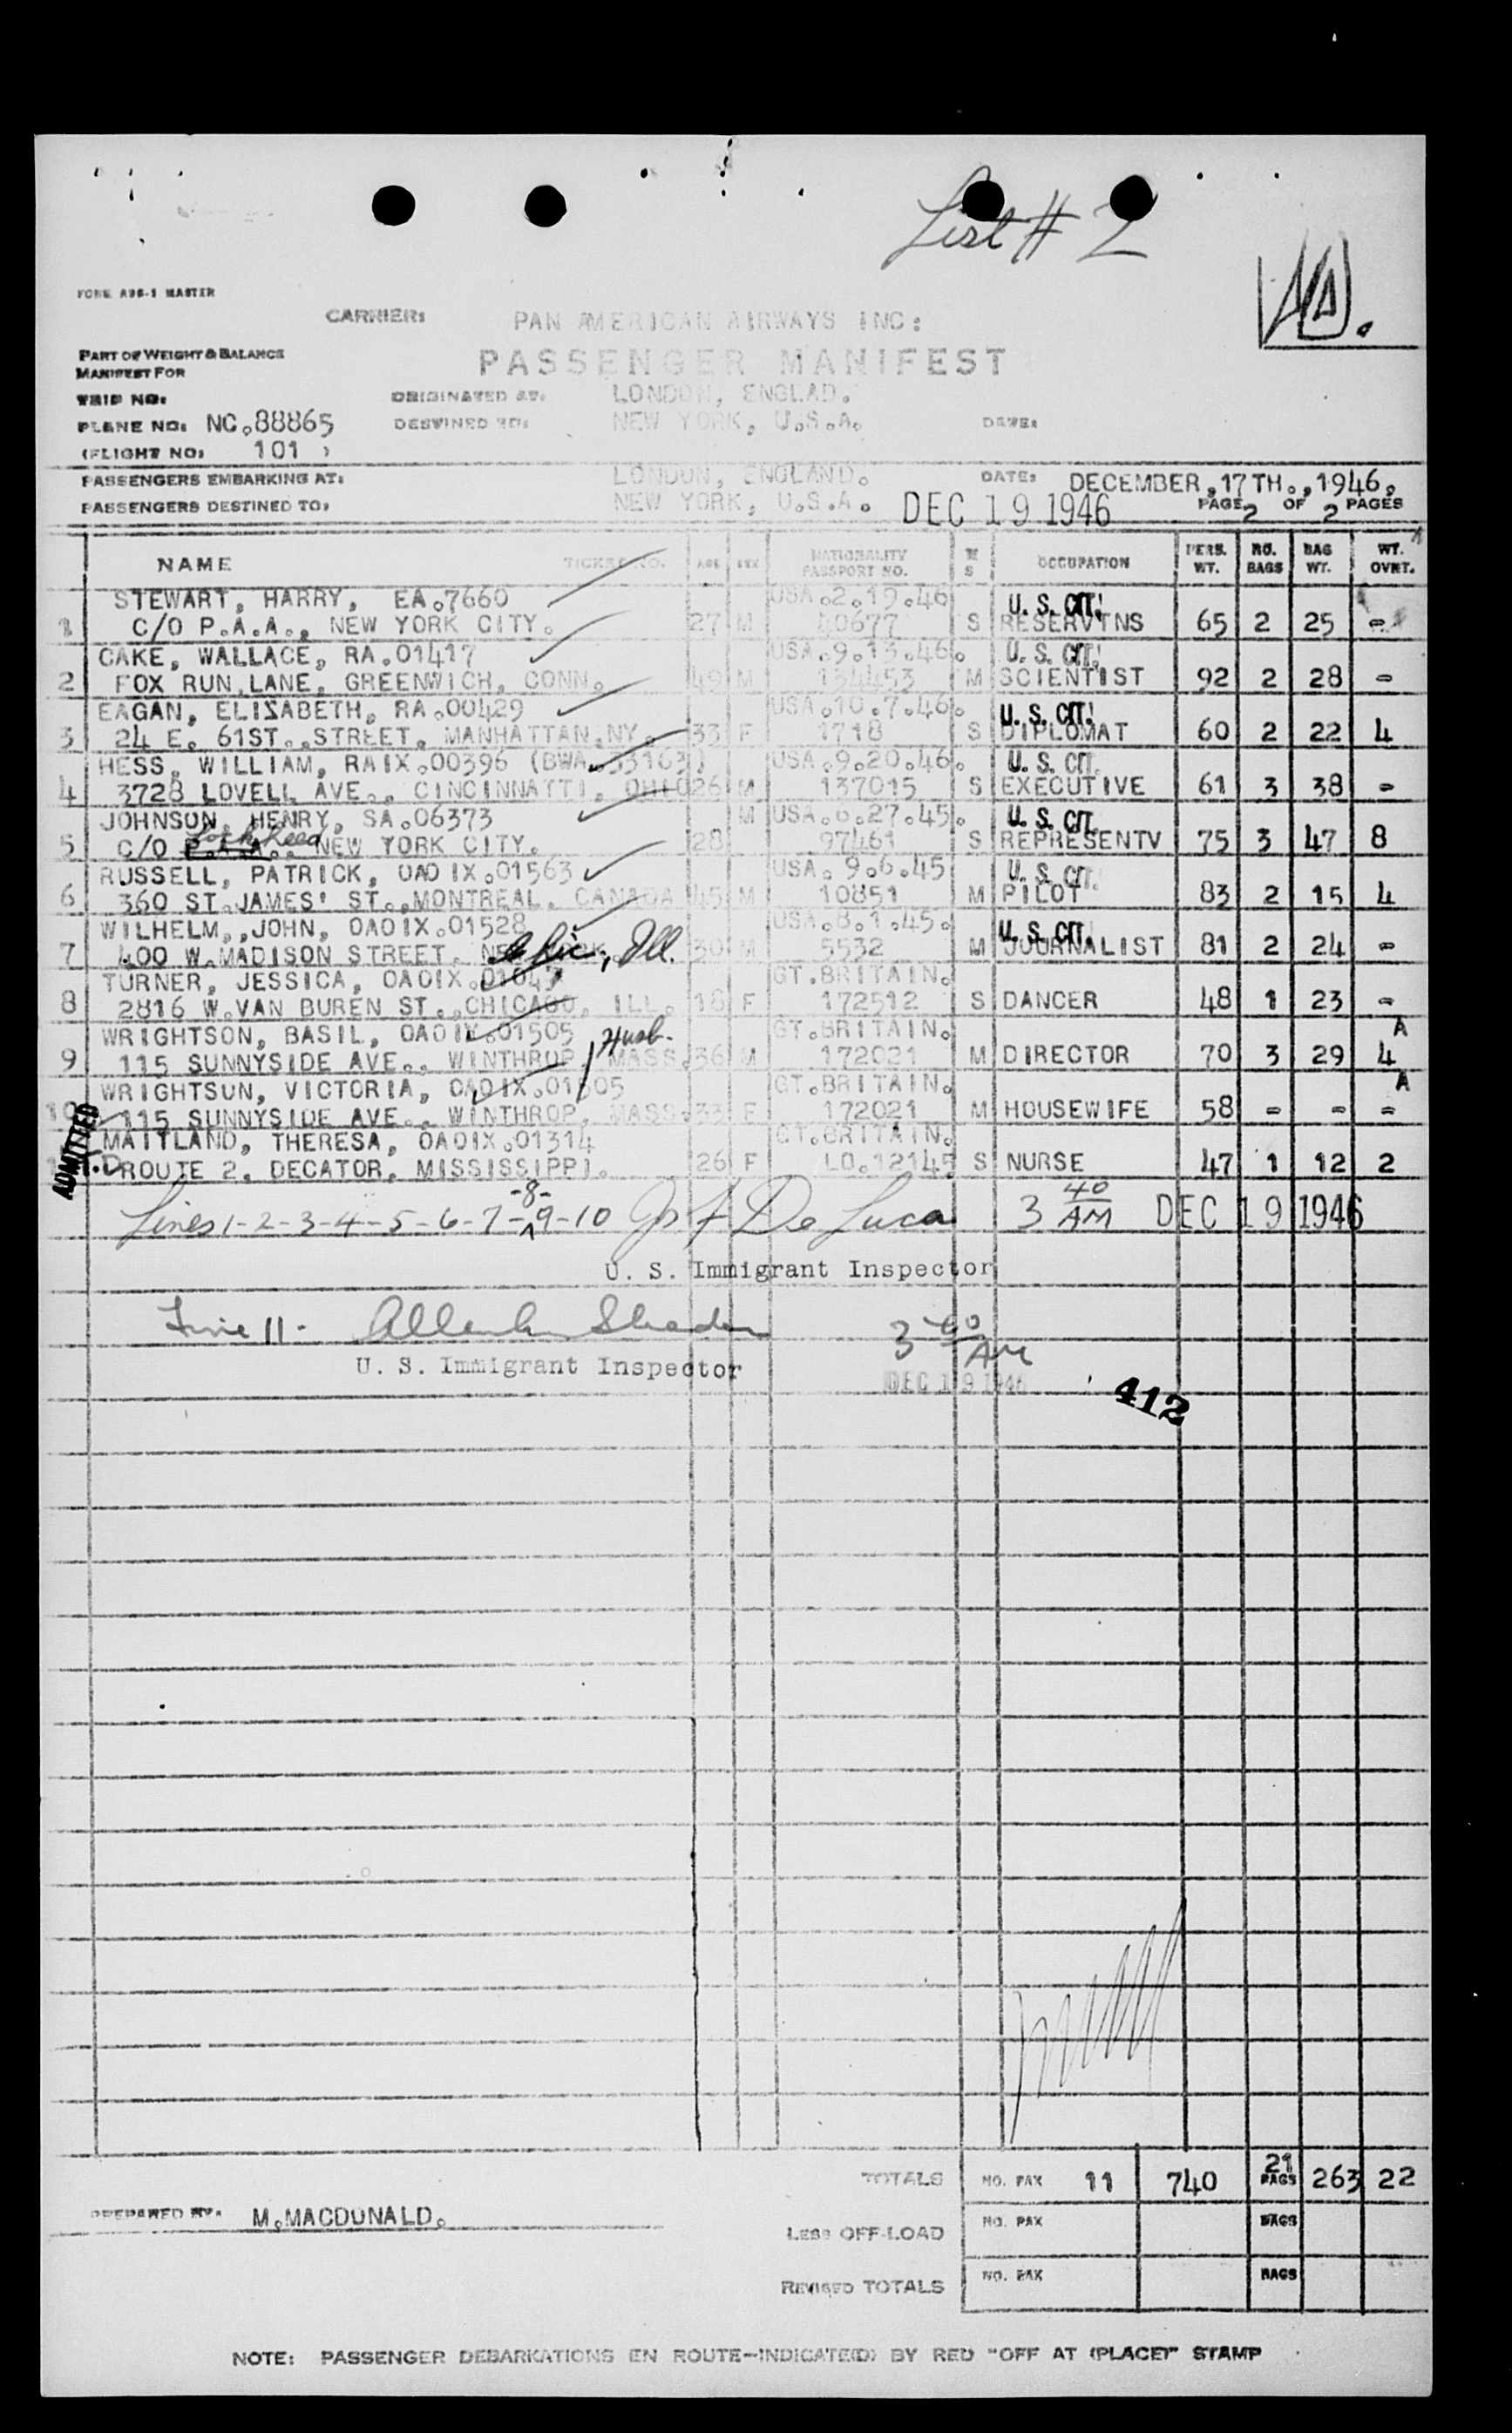 List # 2
FORM A96-1 MASTER
CARRIER: PAN AMERICAN AIRWAYS INC:
PART OF WEIGHT & BALANCE
MANIFEST FOR
PASSENGER MANIFEST
TRIP NO: ORIGINATED AT: LONDON, ENGLAD.
PLANE NO: NC.88865 DESTINED TO: NEW YORK, U.S.A. DATE:
(FLIGHT NO: 101 )
PASSENGERS EMBARKING AT: LONDON, ENGLAND. DATE: DECEMBER,17TH.,1946.
PASSENGERS DESTINED TO: NEW YORK, U.S.A. DEC 19 1946 PAGE 2 OF 2 PAGES
NAME TICKET NO. AGE SEX NATIONALITY PASSPORT NO. M S OCCUPATION PERS. WT. NO. BAGS BAG WT. WT. OVNT.
STEWART, HARRY, EA.7660 USA.2.19.46 U. S. CIT!
1 C/O P.A.A., NEW YORK CITY. 27 M 40677 S RESERVTNS 65 2 25 -
CAKE, WALLACE, RA.01417 USA.9.13.46. U. S. CIT!
2 FOX RUN LANE, GREENWICH, CONN. 49 M 134453 M SCIENTIST 92 2 28 -
EAGAN, ELISABETH, RA.00429 USA.10.7.46. U. S. CIT!
3 24 E. 61ST..STREET, MANHATTAN.NY. 33 F 1718 S DIPLOMAT 60 2 22 4
HESS, WILLIAM, RAIX.00396 (BWA.33163) USA.9.20.46. U. S. CIT.
4 3728 LOVELL AVE., CINCINNATTI, OHIO 26 M 137015 S EXECUTIVE 61 3 38 -
JOHNSON, HENRY, SA.06373 M USA.6.27.45. U. S. CIT.
5 C/O P.A.A. Lockheed NEW YORK CITY. 28 97461 S REPRESENTV 75 3 47 8
RUSSELL, PATRICK, OAOIX.01563 USA. 9.6.45 U. S. CIT.
6 360 ST.JAMES' ST.,MONTREAL, CANADA 45 M 10851 M PILOT 83 2 15 4
WILHELM,,JOHN, OAOIX.01528 USA.8.1.45. U. S. CIT.
7 400 W.MADISON STREET, NEW YORK. Chic, Ill. 30 M 5532 M JOURNALIST 81 2 24 -
TURNER, JESSICA, OAOIX.01047 GT.BRITAIN.
8 2816 W.VAN BUREN ST.,CHICAGO, ILL. 18 F 172512 S DANCER 48 1 23 -
WRIGHTSON, BASIL, OAOIX.01505 Husb. GT.BRITAIN. A
9 115 SUNNYSIDE AVE., WINTHROP, MASS. 36 M 172021 M DIRECTOR 70 3 29 4
WRIGHTSON, VICTORIA, OAOIX.01505 GT.BRITAIN. A
10 115 SUNNYSIDE AVE., WINTHROP, MASS. 33 F 172021 M HOUSEWIFE 58 - - -
MAITLAND, THERESA, OAOIX.01314 GT.BRITAIN.
ROUTE 2. DECATOR, MISSISSIPPI. 26 F LO.12145 S NURSE 47 1 12 2
ADMITTED
Lines 1-2-3-4-5-6-7-8-9-10 Jos F De Luca 3 40 AM DEC 19 1946
U. S. Immigrant Inspector
Line 11.
3 40 AM
U. S. Immigrant Inspector DEC 19 1946
412
TOTALS NO. PAX 11 740 21 BAGS 263 22
PREPARED BY: M.MACDONALD.
LESS OFF-LOAD NO. PAX BAGS
REVISED TOTALS NO. PAX BAGS
NOTE: PASSENGER DEBARKATIONS EN ROUTE-INDICATE(D) BY RED "OFF AT (PLACE)" STAMP